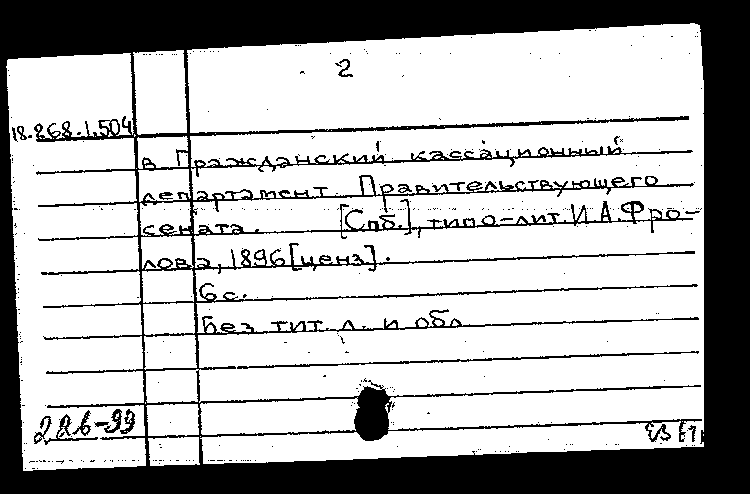 2
18.268.1.504
в Гражданский кассационный
департамент Правительствующего
сената. [Спб.], типо-лит. И.А.Фро-
лова, 1896 [ценз].
6 с.
Без тит. л. и обл
226-99